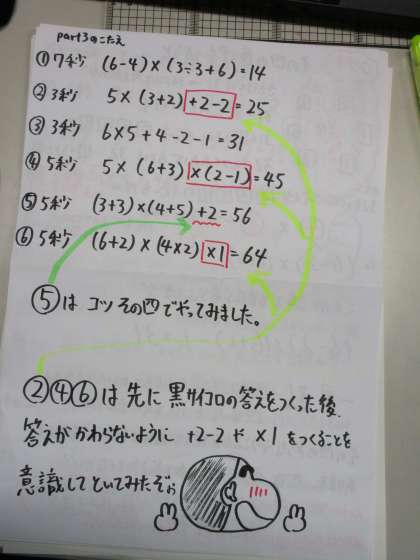 part3のこたえ
①7秒 (6-4)×(3÷3+6)=14
②3秒 5×(3+2)+2-2=25
③3秒 6×5+4-2-1=31
④5秒 5×(6+3)×(2-1)=45
⑤5秒 (3+3)×(4+5)+2=56
⑥5秒 (6+2)×(4×2)×1=64
⑤は コツその四でやってみました。
②④⑥は先に黒サイコロの答えをつくった後、
答えがかわらないように +2-2や ×1をつくることを
意識してといてみたぞぉ